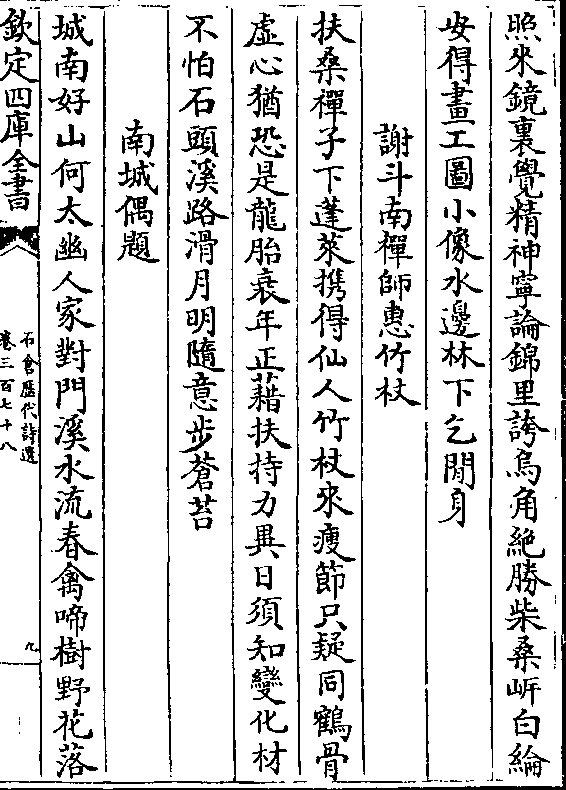 照來鏡裏覺精神寧論錦里誇烏角絶勝柴桑岸白綸
安得畫工圖小像水邊林下乞閒身
謝斗南禪師惠竹杖
扶桑禪子下蓬萊携得仙人竹杖來瘦節只疑同鶴骨
虛心猶恐是龍胎衰年正藉扶持力異日須知變化材
不怕石頭溪路滑月明隨意步蒼苔
南城偶題
城南好山何太幽人家對門溪水流春禽啼樹野花落
欽定四庫全書
石倉歷代詩選
卷三百七十八
九